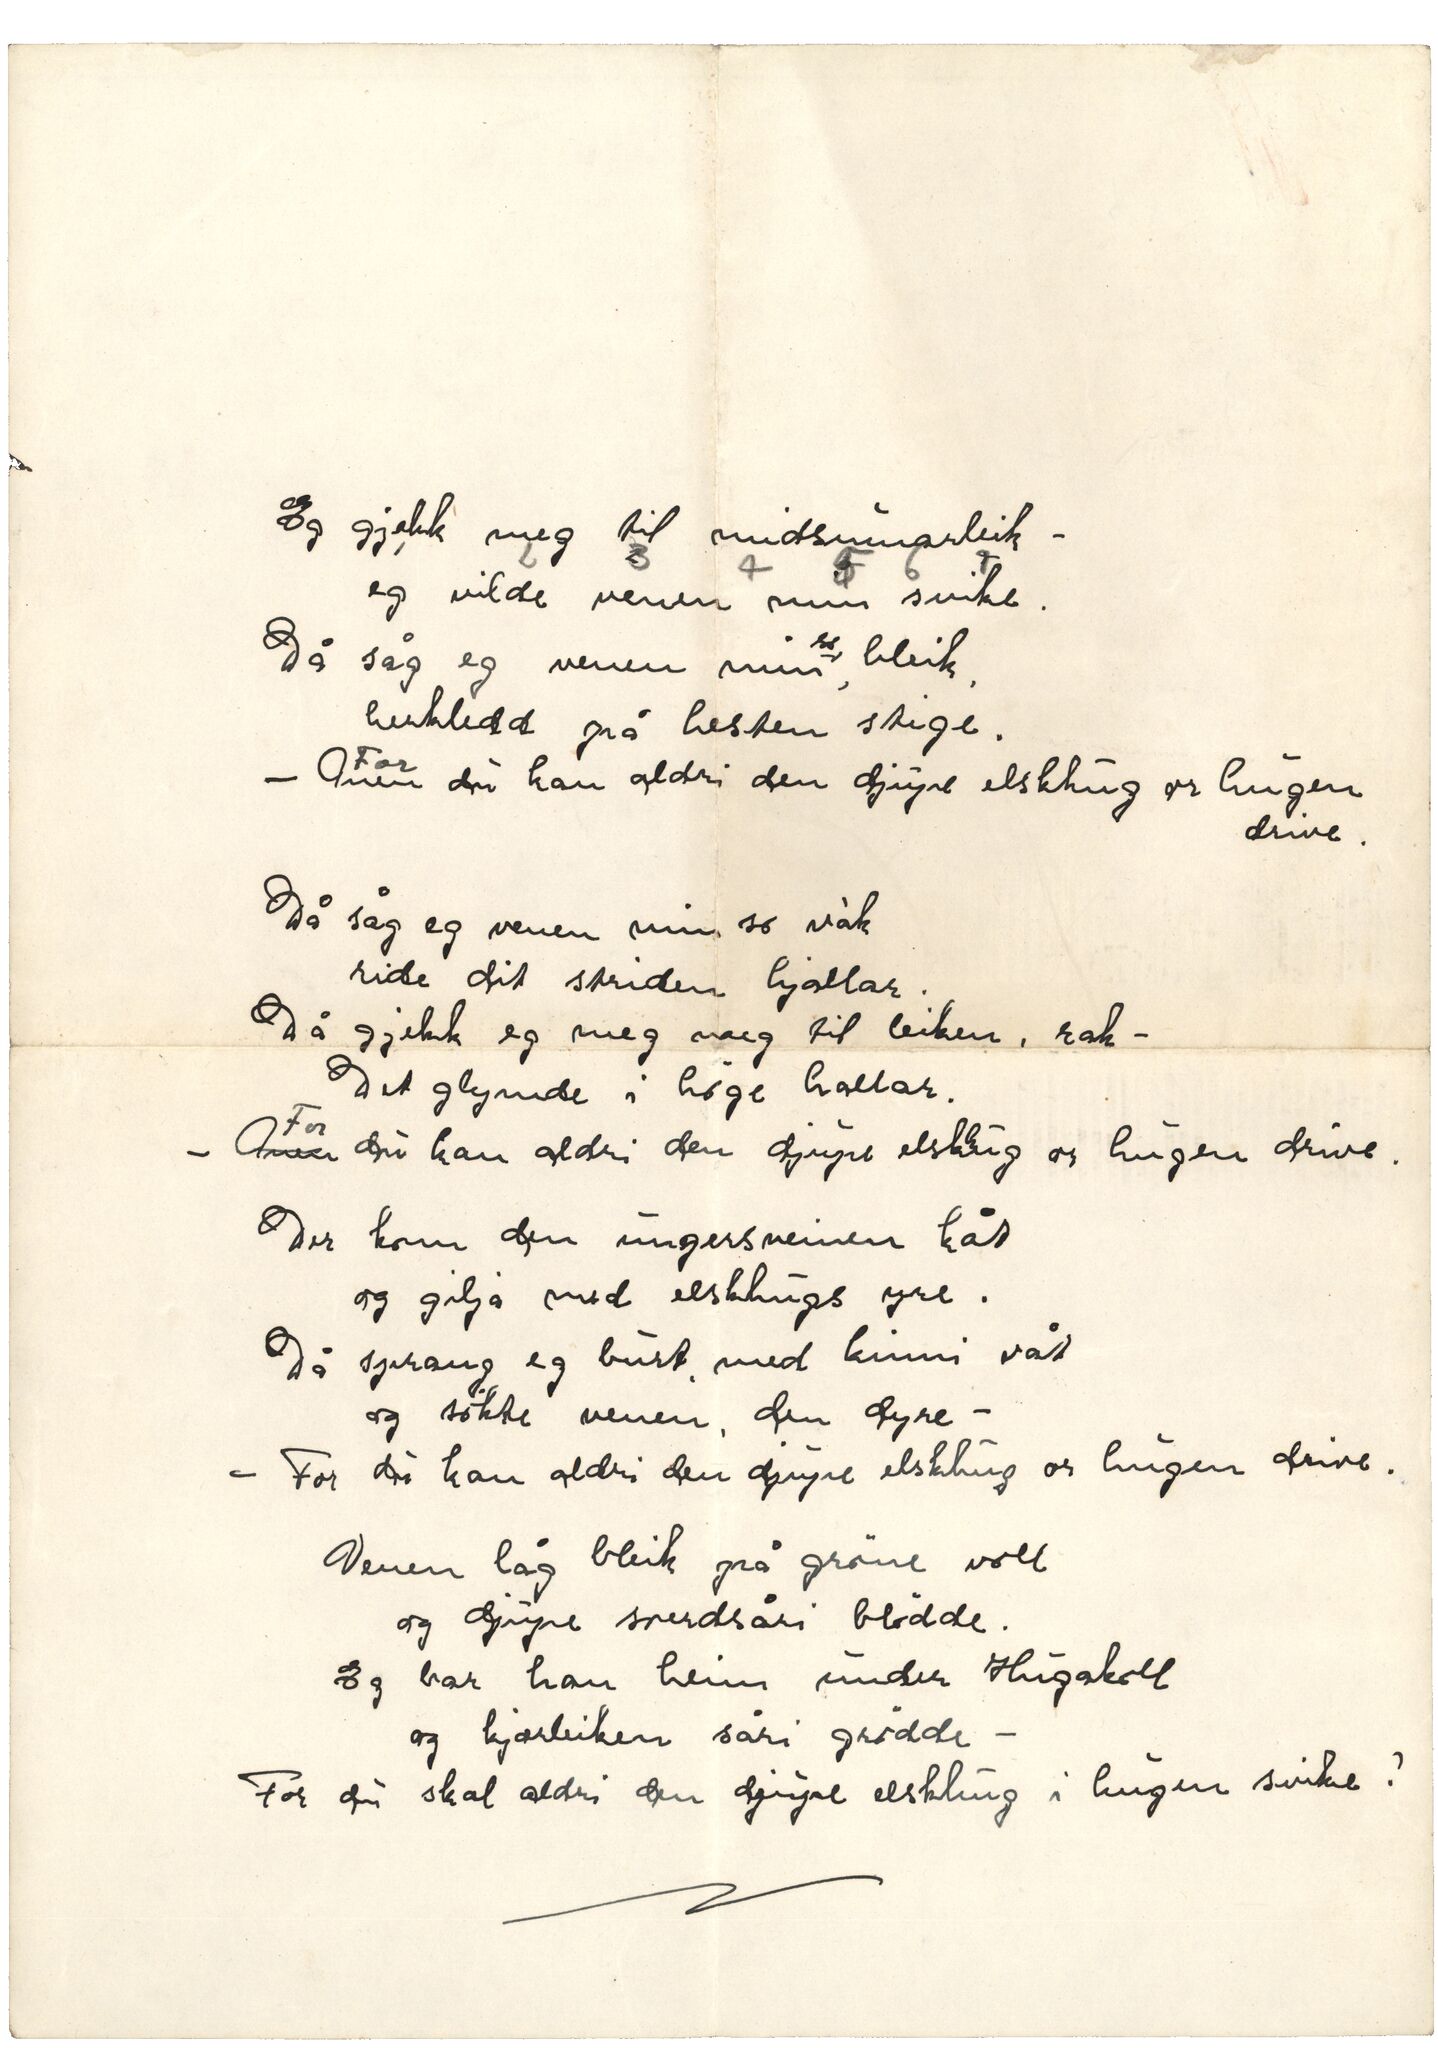 Eg gjekk meg til midsumarleik –
1 2 3 4 5 6 7
eg vilde venen min svike.
Då såg eg venen min, so bleik,
herkledd på hesten stige.
– Men For du kan aldri den djupe elskhug or hugen
drive.
Då såg eg venen min so våk
ride dit striden hjallar.
Då gjekk eg meg til leiken, rak –
Det glymde i höge hallar.
– Men For du kan aldri den djupe elskhug or hugen drive.
Der kom den ungersveinen kåt
og gilja med elskhugs yre.
Då sprang eg burt, med kinni våt
og sökte venen, den dyre –
– For du kan aldri den djupe elskhug or hugen drive.
Venen låg bleik på gröne voll
og djupe sverdsåri blödde.
Eg bar han heim under Hugakoll
og kjærleiken såri grödde –
For du skal aldri den djupe elskhug i hugen svike!